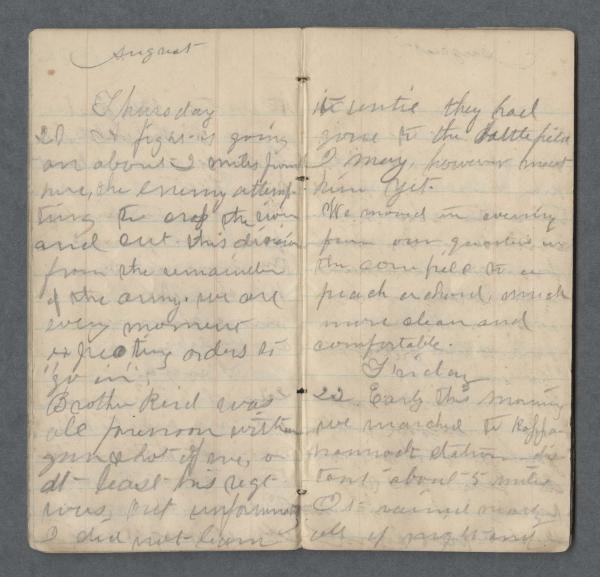 August
Thursday
21 A fight is going
on about 2 miles from
here, the enemy attemp-
ting to cross the river
and cut this division
from the remainder
of the army. we are
every moment
expecting orders to
"go in".
Brother Reid was
all forenoon within
gunshot of me, or
at least his regt
was, but unfortunately
I did not learn
it until they had
gone to the battlefield
I may, however meet
him yet.
We moved in evening
from our quarters in
the cornfield to a
peach orchard, much
more clean and
comfortable.
Friday
22 Early this morning
we marched to Rappa-
hannock station dis-
tant, about 5 miles
It rained nearly
all of night and